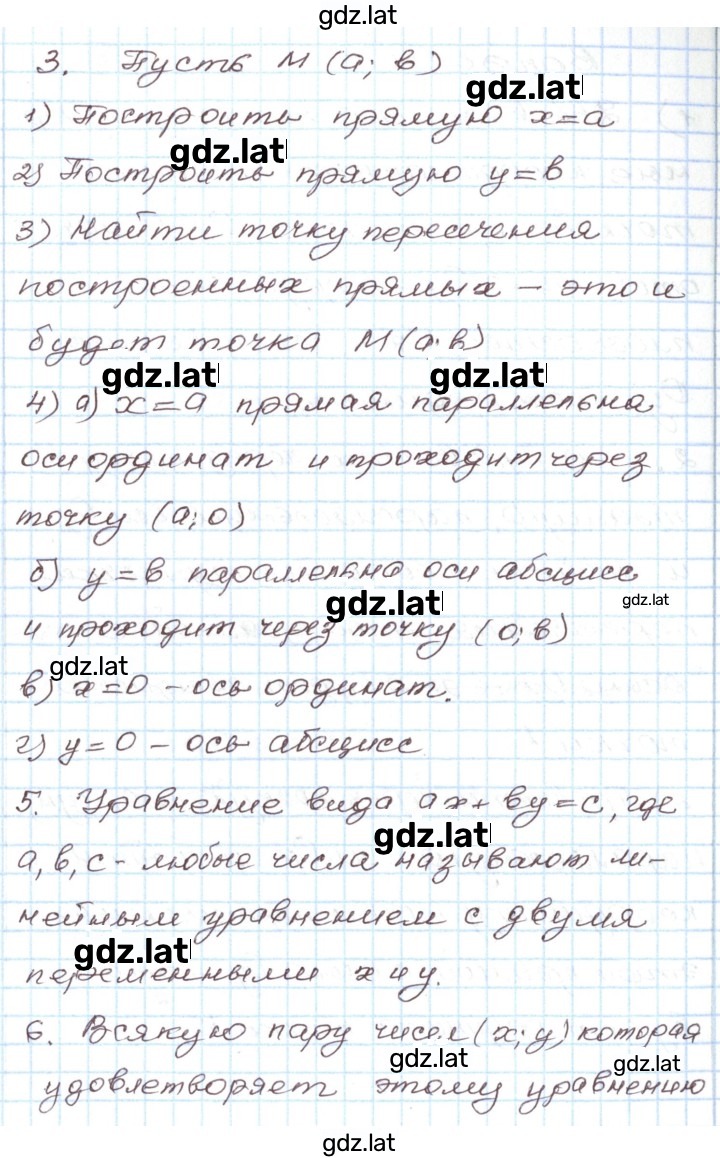 gdz.lat
3. Пусть М (а; в)
gdz.lat
1) Построить прямую х=а
gdz.lat
2) Построить прямую у=в
3) Найти точку пересечения
построенных прямых – это и
будет точка М (а; в)
gdz.lat gdz.lat
4) а) х=а прямая параллельна
оси ординат и проходит через
точку (а; 0)
б) у=в параллельна оси абсцисс
gdz.lat gdz.lat
и проходит через точку (0; в)
gdz.lat
в) х=0 – ось ординат.
г) у=0 – ось абсцисс
5. Уравнение вида ах+ву=с, где
gdz.lat
а, в, с - любые числа называют ли-
нейным уравнением с двумя
gdz.lat
переменными х и у.
6. Всякую пару чисел (х; у) которая
gdz.lat gdz.lat
удовлетворяет этому уравнению
gdz.lat